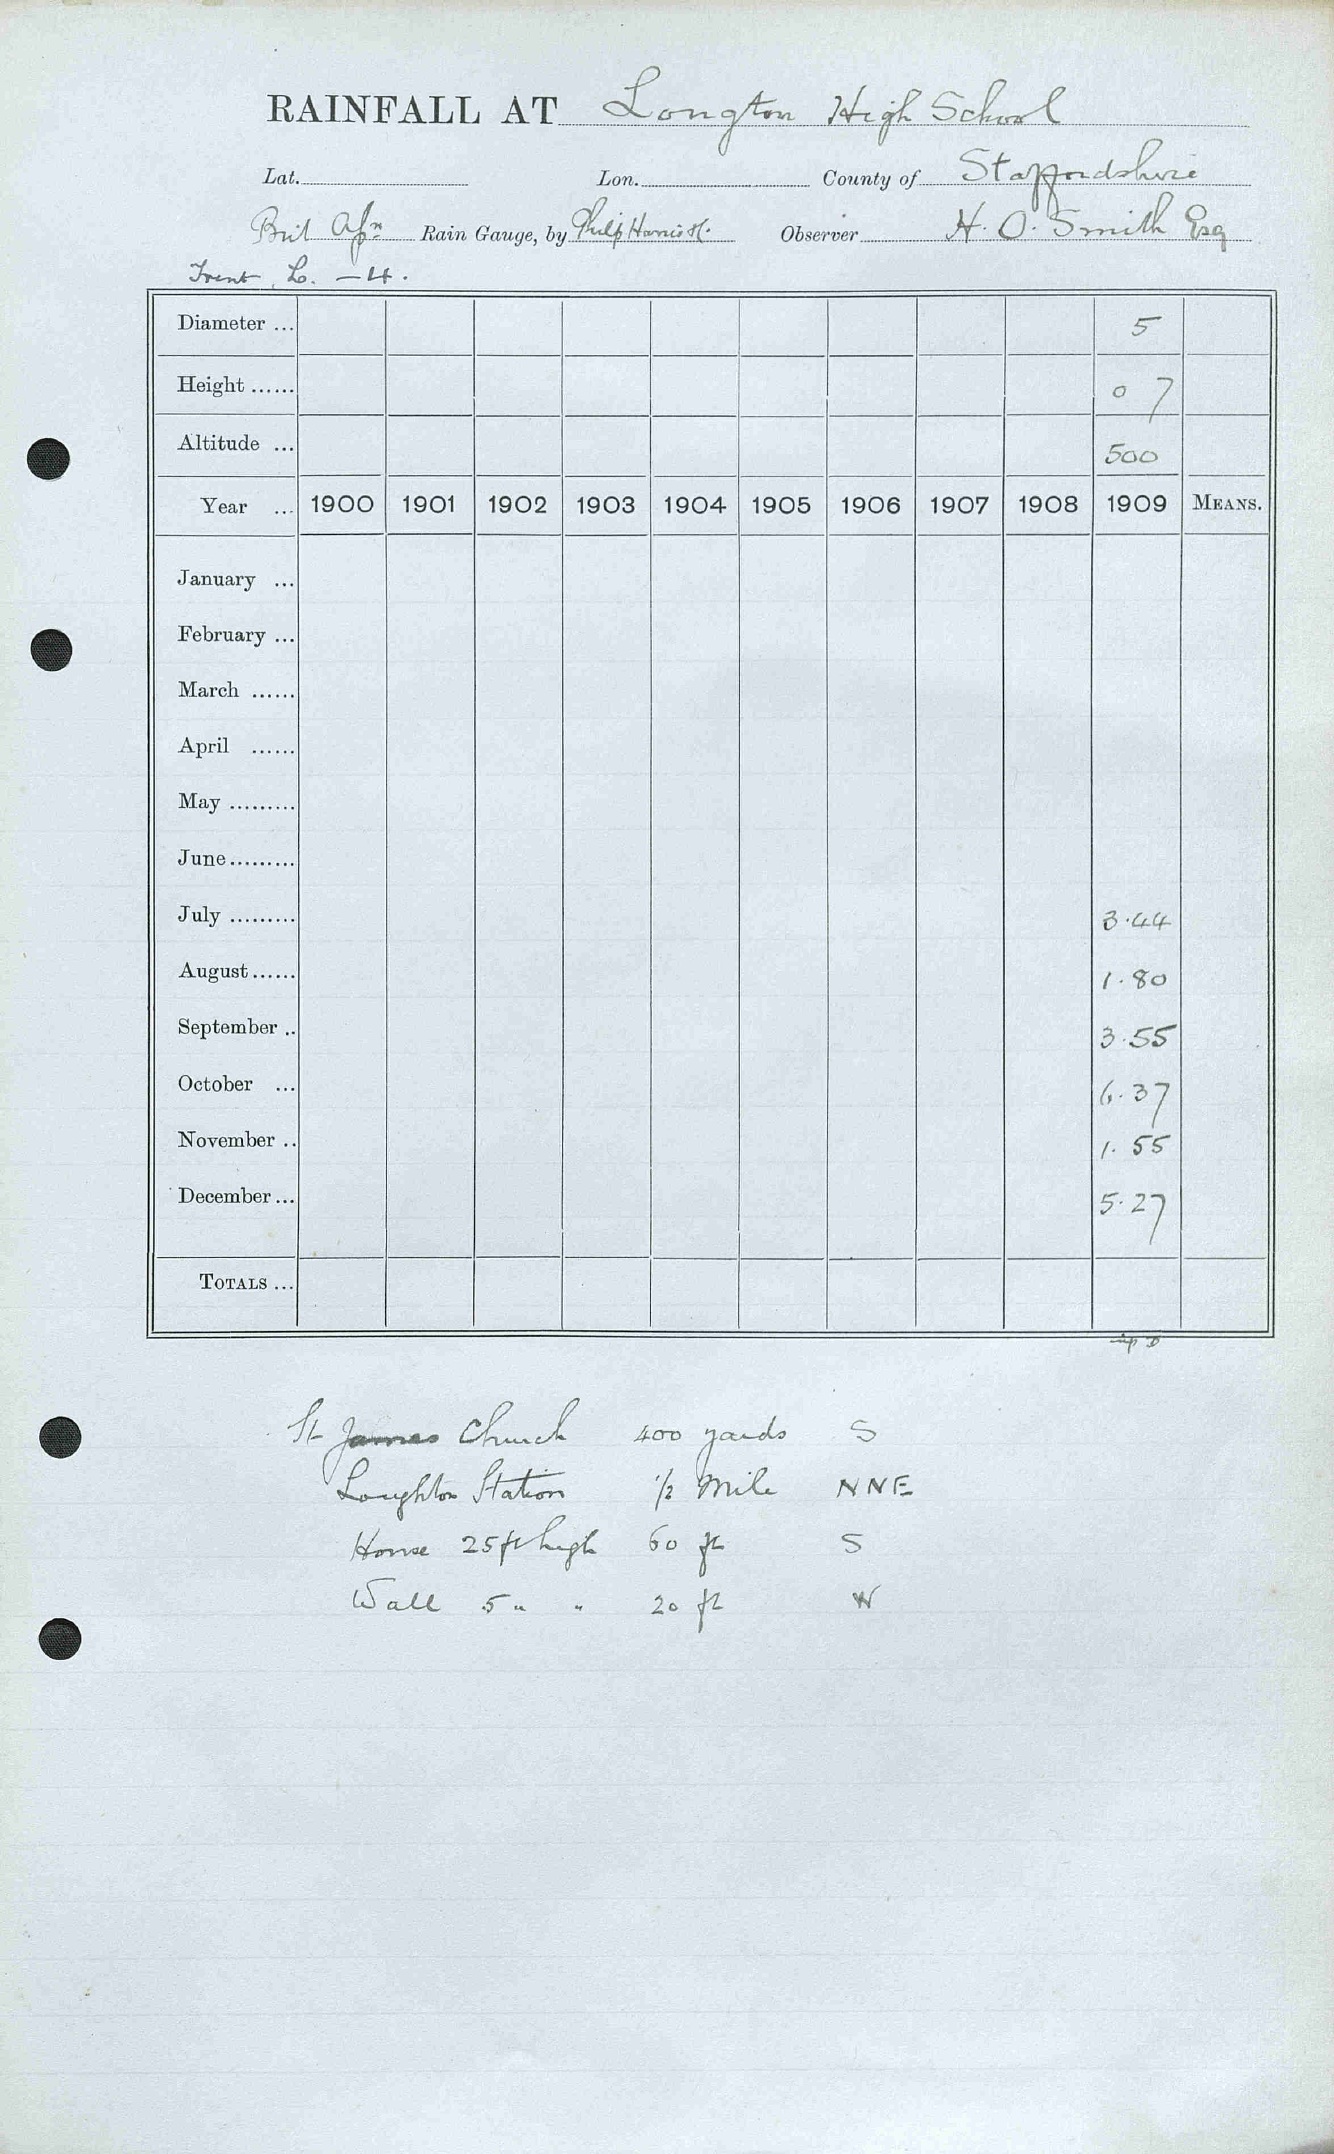 RAINFALL AT Longton High School
Lat. Lon. County of Staffordshire
Brit Assn Rain Gauge, by Philip Harris Observer H. O. Smith Esq
Trent, L. — 4.
Diameter ... 5
Height ...... 0 7
Altitude ... 500
Year ... 1900 1901 1902 1903 1904 1905 1906 1907 1908 1909 MEANS.
January ...
February ...
March ......
April ......
May .........
June.........
July ......... 3.44
August...... 1.80
September .. 3.55
October ... 6.37
November .. 1.55
December... 5.27
TOTALS ...
St James Church 400 yards S
Longhton Station 1/2 Mile NNE
House 25 ft high 60 ft S
Wall 5 " " 20 ft W